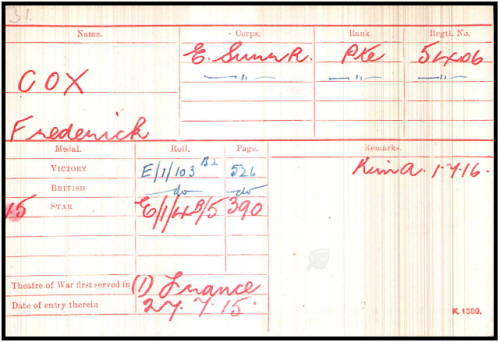 31.
Name. Corps. Rank Regtl. No.
COX E. Surr. R. Pte 5406
—"— —"— —"—
Frederick
Medal. Roll. Page. Remarks.
VICTORY E/1/103 B2 526 Kin A. 1·7·16.
BRITISH do do
15 STAR E/1/4B/5 390
Theatre of War first served in (1) France
Date of entry therein 27.7.15.
K. 1380.